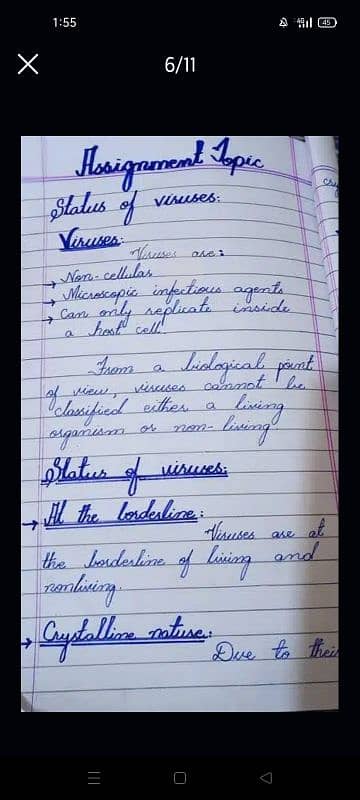 1:55
45
6/11
Assignment Topic
Status of viruses:
Viruses:
Viruses are:
→ Non-cellular
→ Microscopic infectious agents
→ Can only replicate inside
a host cell
From a biological point
of view, viruses cannot be
classified either a living
organism or non-living
Status of viruses:
→ At the borderline:
Viruses are at
the borderline of living and
nonliving.
→ Crystalline nature:
Due to their